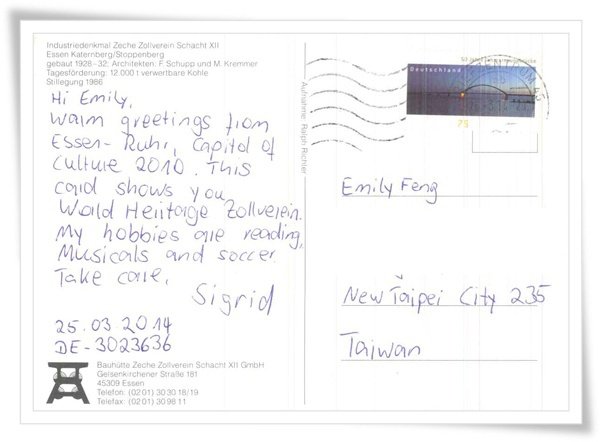 Industriedenkmal Zeche Zollverein Schacht XII
Essen Katernberg/Stoppenberg
gebaut 1928-32; Architekten: F. Schupp und M. Kremmer
Tagesförderung: 12.000 t verwertbare Kohle
Stillegung 1986
Hi Emily,
warm greetings from
Essen-Ruhr, Capitol of
Culture 2010. This
card shows you
World Heritage Zollverein.
My hobbies are reading,
Musicals and soccer.
Take care,
Sigrid
25.03.2014
DE-3023636
Bauhütte Zeche Zollverein Schacht XII GmbH
Gelsenkirchener Straße 181
45309 Essen
Telefon: (02 01) 30 30 18/19
Telefax: (02 01) 30 98 11
Aufnahme: Ralph Richter
Deutschland
75
Emily Feng
New Taipei City 235
Taiwan